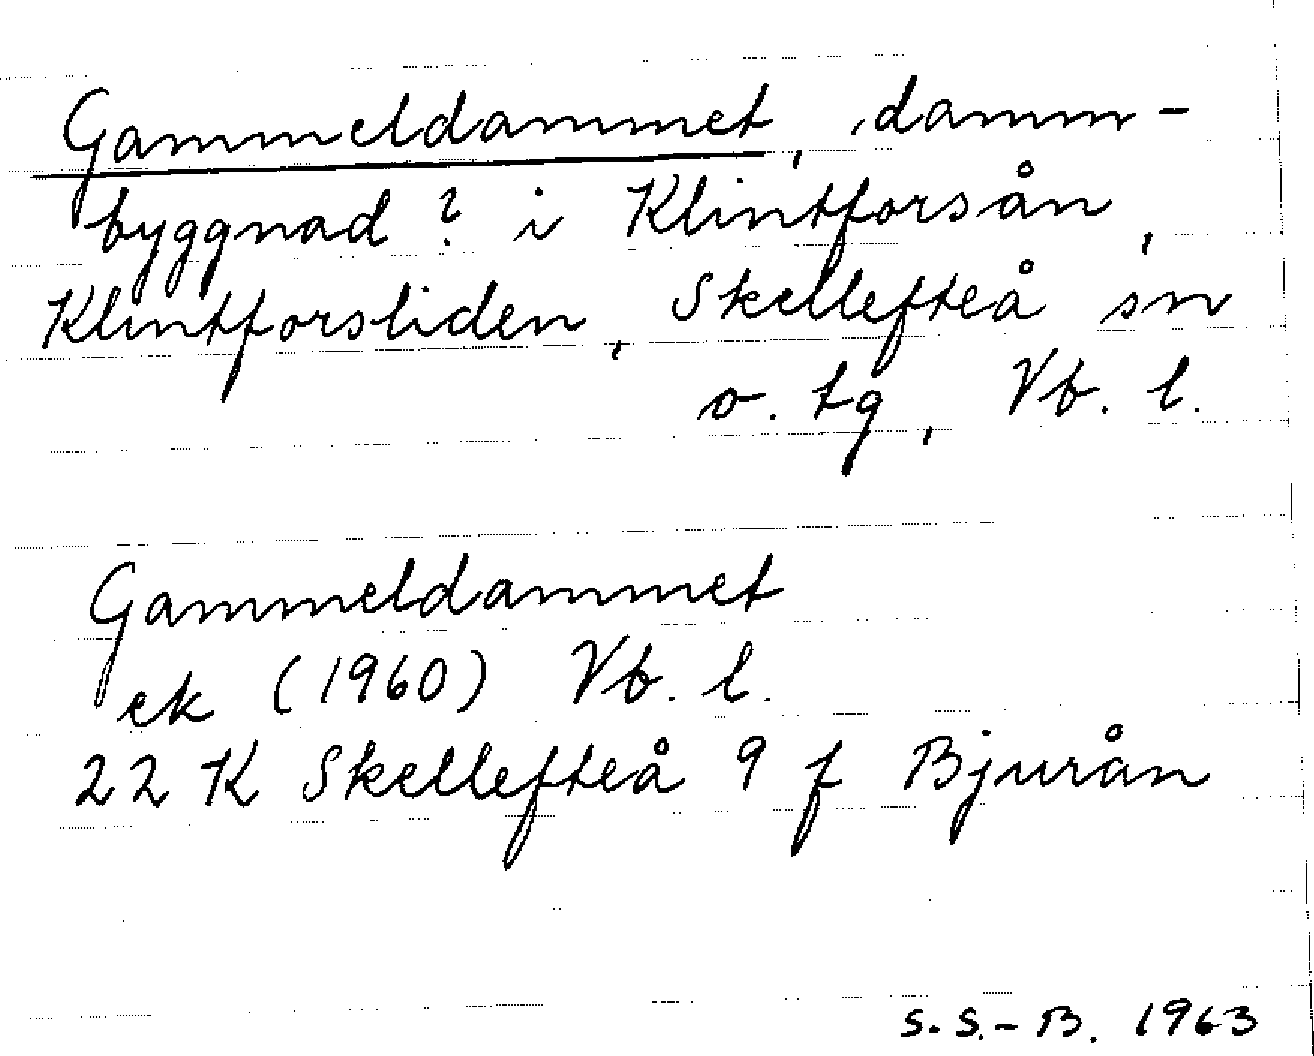 Gammeldammet, damm-
byggnad? i Klintforsån,
Klintforsliden, Skellefteå sn
o. tg, Vb. l.
Gammeldammet
ek (1960) Vb. l.
22 K Skellefteå 9 f Bjurån
S. S.-B. 1963